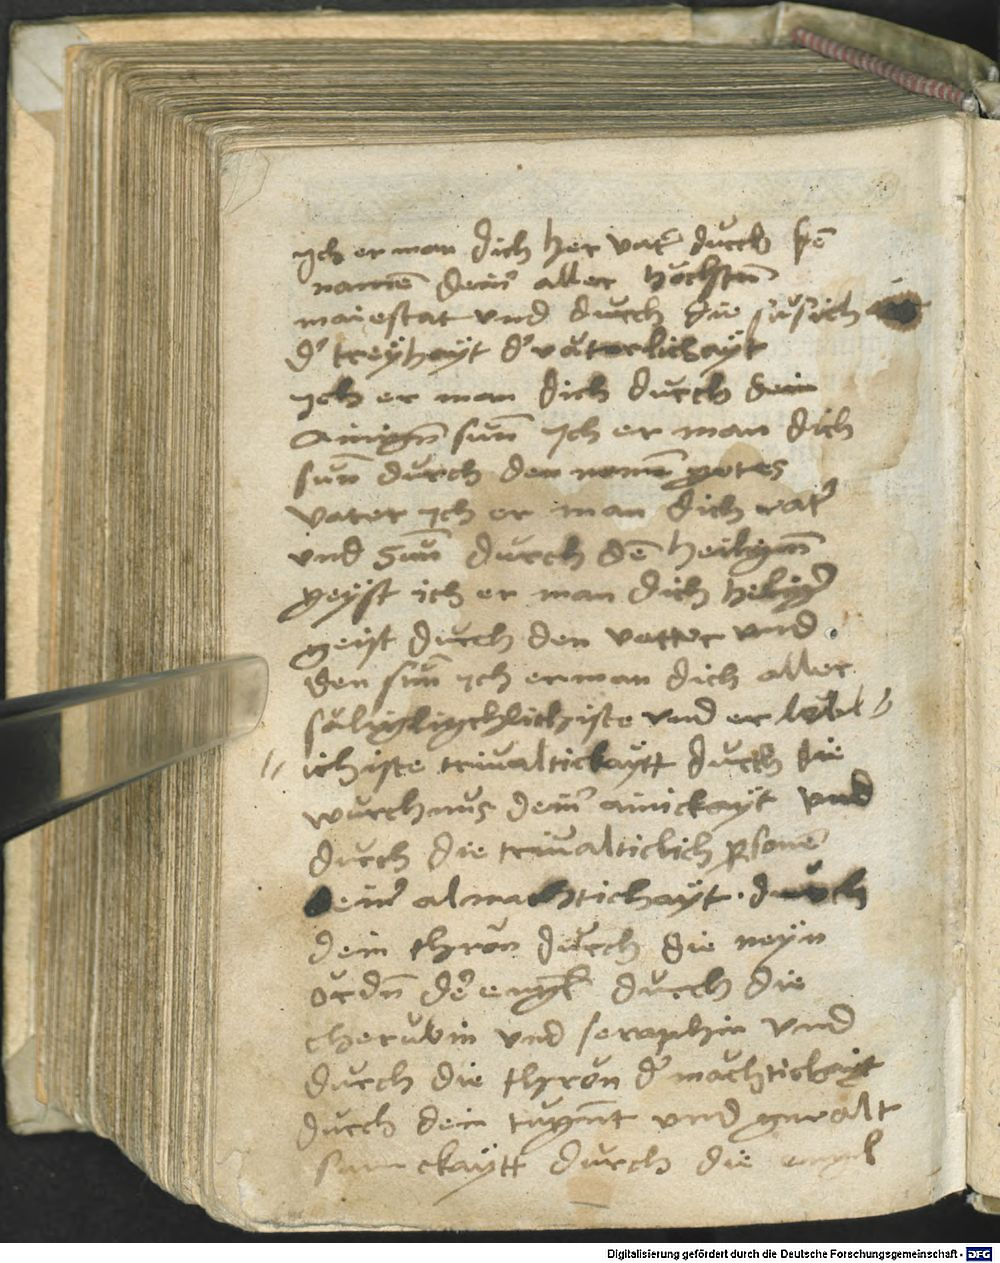 ych er man dich her vatr̃ durch dē
namē deinr̃ aller hochstn̄
maiestat vnd durch die
dr̃ treyhayt dr̃ väterlichayt
ych er man dich durch dein
ainign̄ sun̄ ych er man dich
sun̄ durch den namē gotes
vater ych er man dich vatr̃
vnd Sun̄ durch dē heilign̄
geyst ich er man dich heligr̃
geist durch den vatter vnd
den sun̄ ych erman dich aller
vnd er
ichiste triualtickaytt durch die
wurchnus deinr̃ ainickayt vnd
durch die triualticlich psonē
deinr̃ almachtichayt · durch
dein thron durch die neyn
ordn̄ der̃ engl durch die
cherubin vnd seraphin vnd
durch die thron dr̃ mächtickayt
durch dein tugn̄t vnd gwalt
samckaytt durch die engl
Digitalisierung gefördert durch die Deutsche Forschungsgemeinschaft - DFG